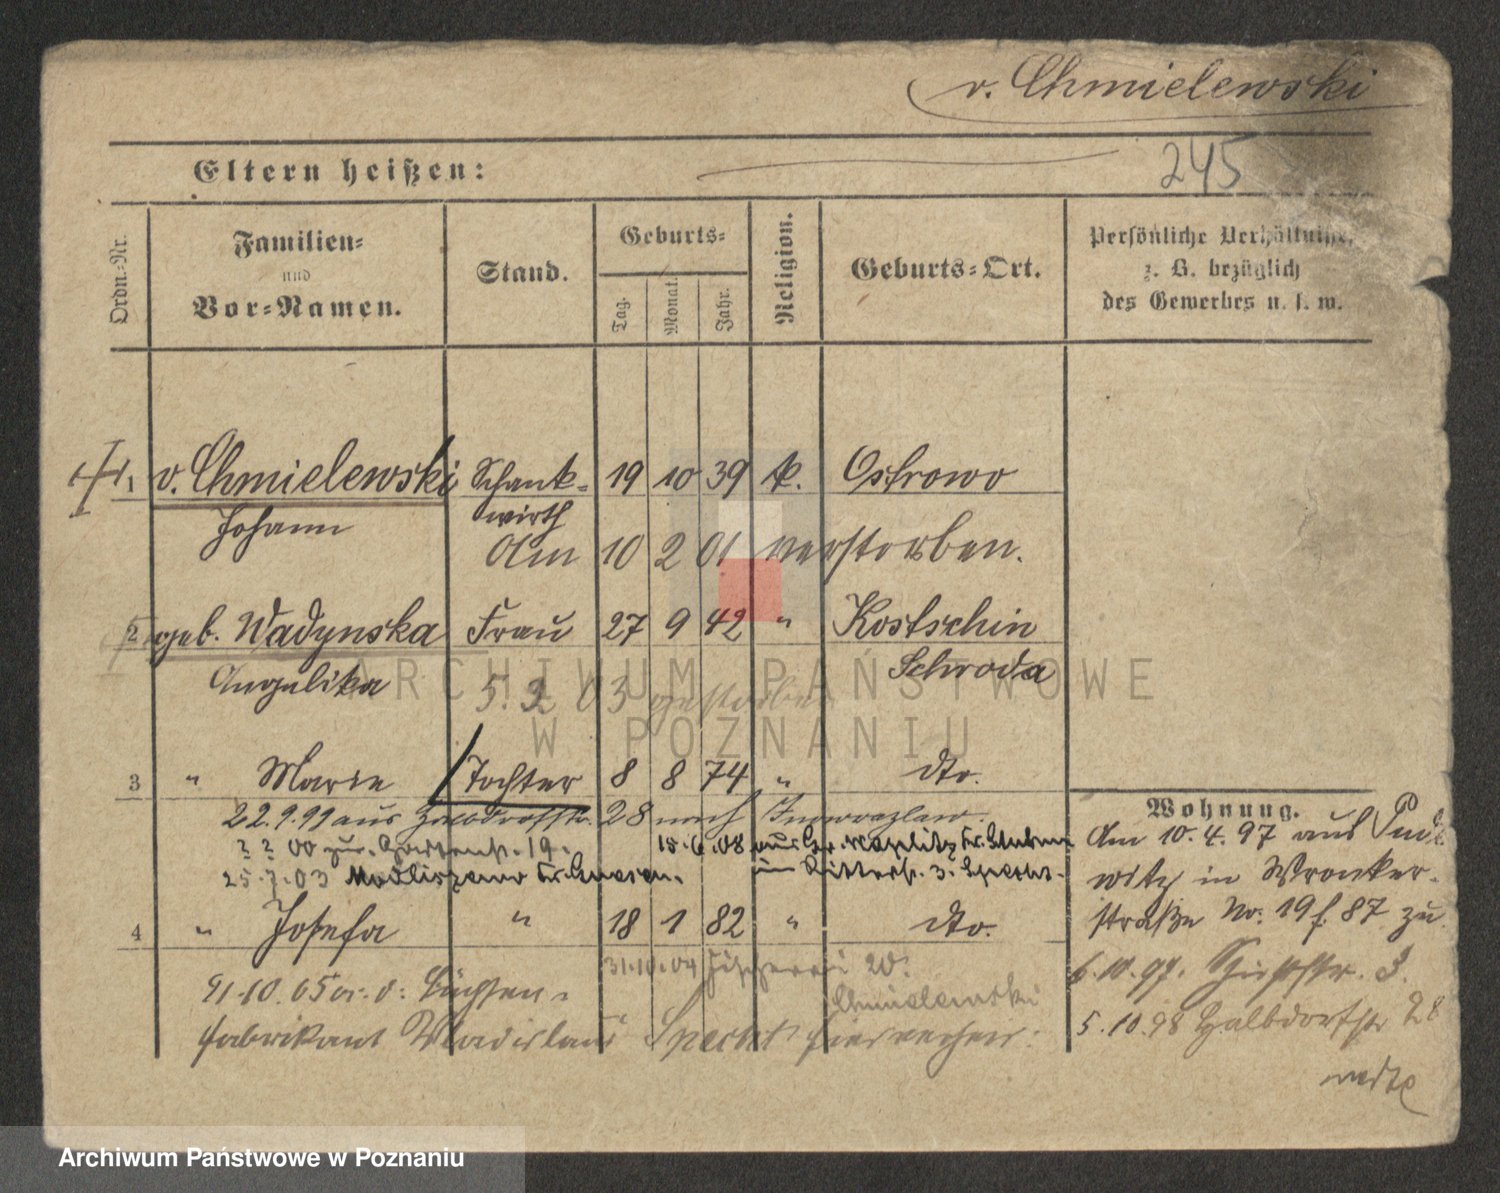 v. Chmielewski
Eltern heißen:
245
Ordn.-Nr.
Familien-
und
Vor-Namen.
Stand.
Geburts-
Tag.
Monat.
Jahr.
Religion.
Geburts-Ort.
Persönliche Verhältnisse,
z. B. bezüglich
des Gewerbes u. s. w.
1 v. Chmielewski Schank- 19 10 39 k. Ostrowo
Johann wirth
Am 10 2 01 verstorben.
2 geb. Wadynska Frau 27 9 42 " Kostschin
Angelika Schroda
5. 2 03 gestorben
3 " Marie Tochter 8 8 74 " dto.
22.9.99 aus Halbdorfstr. 28 nach Inowrazlaw.
? ? 00 zur. Gartenstr. 19.
18.6.08 aus
25.7.03 Kr. Gnesen.
im Ritterstr. 3. Specht.
4 " Josefa " 18 1 82 " dto.
31.10.04 20.
Chmielewski
21.10.05
fabrikant Wladislaus Specht hier verheir.
Wohnung.
Am 10.4.97 aus Pud
witz in Wronker-
straße No. 19 f. 87 zu
6.10.97. Schießstr. 3.
5.10.98 Halbdorfstr 28
ARCHIWUM PAŃSTWOWE
W POZNANIU
Archiwum Państwowe w Poznaniu